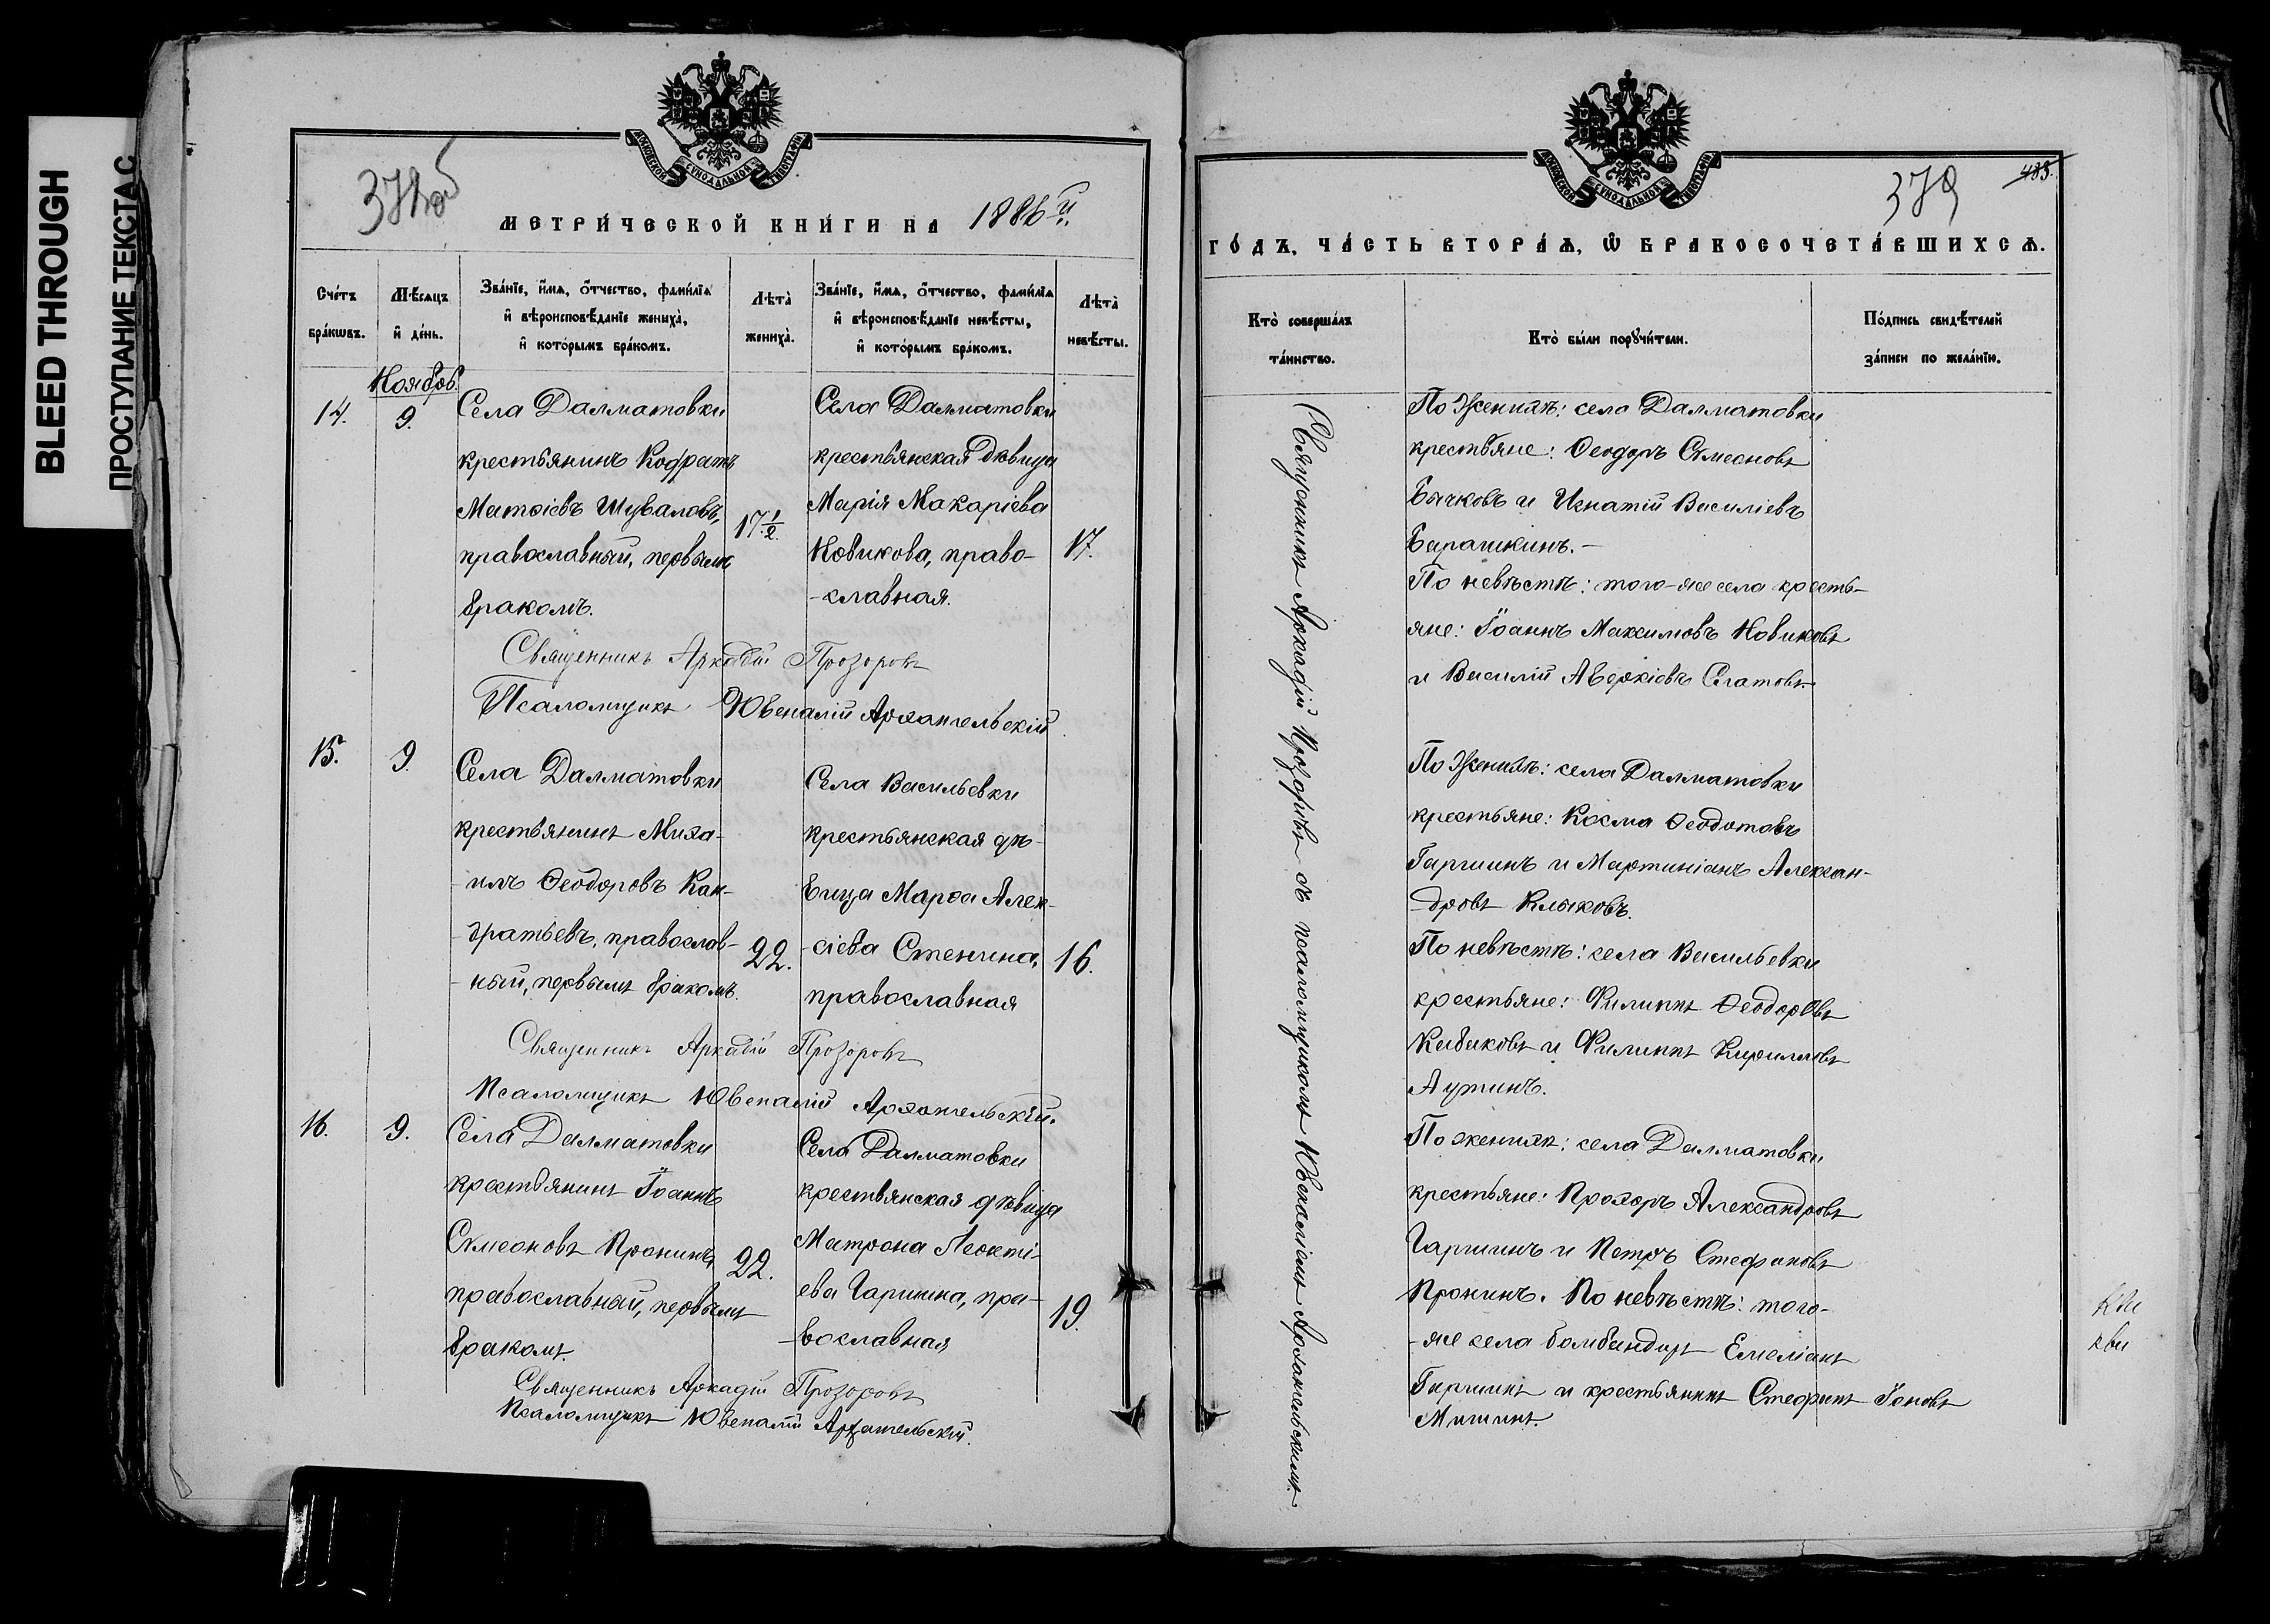 BLEED THROUGH
ПРОСТУПАНИЕ ТЕКСТА С
МОСКОВСКОЙ СѴНОДАЛЬНОЙ ТИПОГРАФІИ
378об
МЕТРИ́ЧЕСКОЙ КНИ́ГИ НА 1886-й
Сче́тъ бра́кѡвъ.
Мѣ́сяцъ и҆ де́нь.
Зва́нїе, и҆́мя, ѻ҆́тчество, фами́лїя и҆ вѣроисповѣ́данїе жениха̀, и҆ кото́рымъ бра́комъ.
Лѣта̀ жениха̀.
Зва́нїе, и҆́мя, ѻ҆́тчество, фами́лїя и҆ вѣроисповѣ́данїе невѣ́сты, и҆ кото́рымъ бра́комъ.
Лѣта̀ невѣ́сты.
Ноябрь.
14.
9.
Села Далматовки
крестьянинъ Кодратъ
Матѳіевъ Шуваловъ,
православный, первымъ
бракомъ.
17 1/2.
Села Далматовки
крестьянская дѣвица
Марія Макаріева
Новикова, право-
-славная.
17.
Священникъ Аркадій Прозоровъ
Псаломщикъ Ювеналій Архангельскій.
15.
9.
Села Далматовки
крестьянинъ Миха-
-илъ Ѳеодоровъ Кон-
-дратьевъ, православ-
-ный, первымъ бракомъ.
22.
Села Васильевки
крестьянская дѣ-
вица Марѳа Алек-
-сіева Стенина,
православная
16.
Священникъ Аркадій Прозоровъ
Псаломщикъ Ювеналій Архангельскій.
16.
9.
Села Далматовки
крестьянинъ Іоаннъ
Сѵмеоновъ Пронинъ,
православный, первымъ
бракомъ.
22.
Села Далматовки
крестьянская дѣвица
Матрона Леонті-
ева Гаршина, пра-
-вославная
19.
Священникъ Аркадій Прозоровъ
Псаломщикъ Ювеналій Архангельскій.
МОСКОВСКОЙ СѴНОДАЛЬНОЙ ТИПОГРАФІИ
379
483.
ГО́ДЪ, ЧА́СТЬ ВТОРА́Я, Ѽ БРАКОСОЧЕТА́ВШИХСЯ.
Кто̀ соверша́лъ та́инство.
Кто̀ бы́ли порꙋчи́тели.
По́дпись свидѣ́телей за́писи по жела́нїю.
Священникъ Аркадій Прозоровъ съ псаломщикомъ Ювеналіемъ Архангельскимъ.
По женихѣ: села Далматовки
крестьяне: Ѳеодоръ Сѵмеоновъ
Бычковъ и Игнатій Василіевъ
Барашкинъ.-
По невѣстѣ: того-же села кресть-
яне: Іоаннъ Максимовъ Новиковъ
и Василій Аверкіевъ Слатовъ.
По женихѣ: села Далматовки
крестьяне: Косма Ѳеодотовъ
Гаршинъ и Мартиніанъ Алексан-
дровъ Клыковъ.
По невѣстѣ: села Васильевки
крестьяне: Филиппъ Ѳеодоровъ
Кибиковъ и Филиппъ Кирилловъ
Ащинъ.
По женихѣ: села Далматовки
крестьяне: Прохоръ Александровъ
Гаршинъ и Петръ Стефановъ
Пронинъ. По невѣстѣ: того-
-же села бомбандиръ Емеліанъ
Гаршинъ и крестьянинъ Стефанъ Іоновъ
Мишинъ.